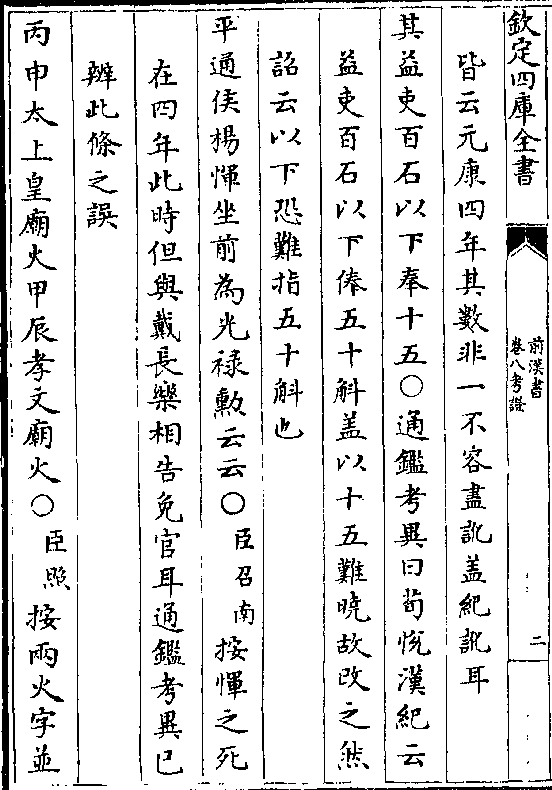 欽定四庫全書
前漢書
卷八考證
二
皆云元康四年其數非一不容盡訛盖紀訛耳
其益吏百石以下奉十五○通鑑考異曰荀恱漢紀云
益吏百石以下俸五十斛盖以十五難曉故改之然
詔云以下恐難指五十斛也
平通侯楊惲坐前為光禄勲云云○臣召南按惲之死
在四年此時但與戴長樂相告免官耳通鑑考異已
辨此條之誤
丙申太上皇廟火甲辰孝文廟火○臣照按兩火字並